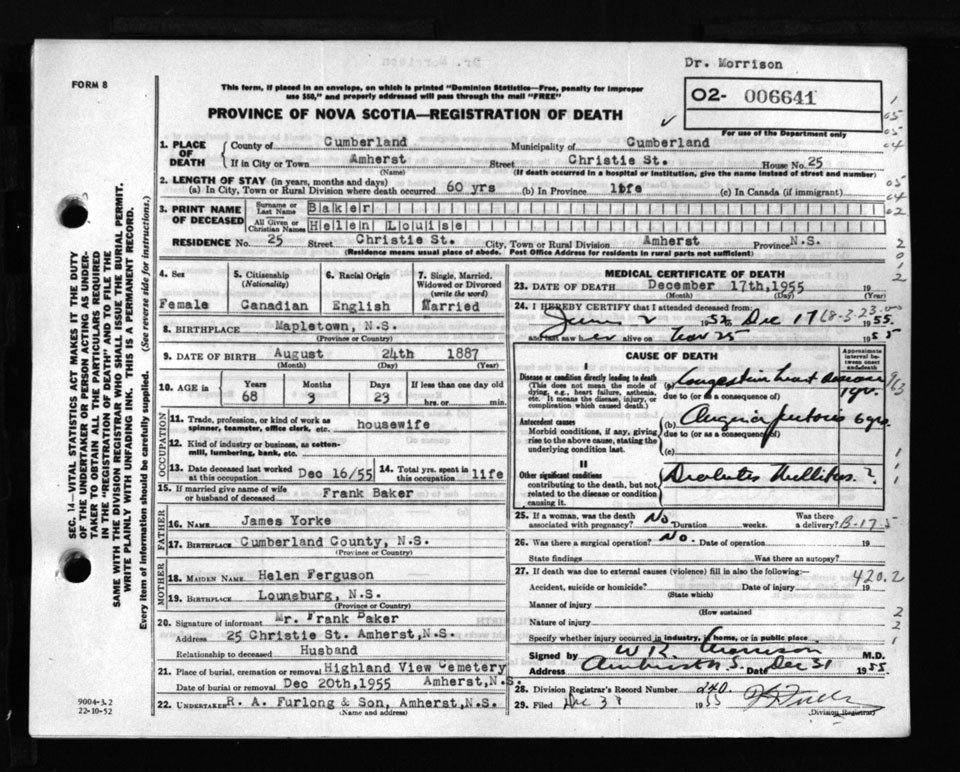 Dr. Morrison
FORM 8
This form, if placed in an envelope, on which is printed "Dominion Statistics—Free, penalty for improper
use $50," and properly addressed will pass through the mail "FREE"
O2- 006641
For use of the Department only
PROVINCE OF NOVA SCOTIA—REGISTRATION OF DEATH
1. PLACE OF DEATH
County of Cumberland Municipality of Cumberland
If in City or Town Amherst Street Christie St. House No. 25
(Name) (If death occurred in a hospital or institution, give the name instead of street and number)
2. LENGTH OF STAY (in years, months and days)
(a) In City, Town or Rural Division where death occurred 60 yrs (b) In Province life (c) In Canada (if immigrant)
3. PRINT NAME OF DECEASED
Surname or Last Name Baker
All Given or Christian Names Helen Louise
RESIDENCE No. 25 Street Christie St. City, Town or Rural Division Amherst Province N.S.
(Residence means usual place of abode. Post Office Address for residents in rural parts not sufficient)
4. Sex Female
5. Citizenship (Nationality) Canadian
6. Racial Origin English
7. Single, Married, Widowed or Divorced (write the word) Married
8. BIRTHPLACE Mapletown, N.S.
(Province or Country)
9. DATE OF BIRTH August 24th 1887
(Month) (Day) (Year)
10. AGE in Years 68 Months 3 Days 23 If less than one day old
hrs. or min.
OCCUPATION
11. Trade, profession, or kind of work as spinner, teamster, office clerk, etc. housewife
12. Kind of industry or business, as cotton-mill, lumbering, bank, etc.
13. Date deceased last worked at this occupation Dec 16/55
14. Total yrs. spent in this occupation life
15. If married give name of wife or husband of deceased Frank Baker
FATHER
16. NAME James Yorke
17. BIRTHPLACE Cumberland County, N.S.
(Province or Country)
MOTHER
18. MAIDEN NAME Helen Ferguson
19. BIRTHPLACE Lounsburg, N.S.
(Province or Country)
20. Signature of informant Mr. Frank Baker
Address 25 Christie St. Amherst, N.S.
Relationship to deceased Husband
21. Place of burial, cremation or removal Highland View Cemetery
Date of burial or removal Dec 20th, 1955 Amherst, N.S.
22. UNDERTAKER R. A. Furlong & Son, Amherst, N.S.
(Name and address)
MEDICAL CERTIFICATE OF DEATH
23. DATE OF DEATH December 17th, 1955 19
(Month) (Day) (Year)
24. I HEREBY CERTIFY that I attended deceased from:
June 2 1952 to Dec 17 1955.
and last saw her alive on Nov 25 1955
CAUSE OF DEATH
Approximate interval between onset and death
I
Disease or condition directly leading to death
(This does not mean the mode of dying, e.g., heart failure, asthenia, etc. It means the disease, injury, or complication which caused death.)
(a) Congestive heart
due to (or as a consequence of) 1 yr.
Antecedent causes
Morbid conditions, if any, giving rise to the above cause, stating the underlying condition last.
(b) Angina Pectoris 6 yrs.
due to (or as a consequence of)
(c)
II
Other significant conditions
contributing to the death, but not related to the disease or condition causing it.
Diabetes Mellitus. ?
25. If a woman, was the death associated with pregnancy? No Duration weeks. Was there a delivery?
26. Was there a surgical operation? No. Date of operation 19
State findings Was there an autopsy?
27. If death was due to external causes (violence) fill in also the following:—
420.2
Accident, suicide or homicide? Date of injury 19
(State which)
Manner of injury
(How sustained)
Nature of injury
Specify whether injury occurred in industry, in home, or in public place
Signed by W K Morrison M.D.
Address Amherst N.S. Date Dec 31 1955.
28. Division Registrar's Record Number 240.
29. Filed Dec 31 1955
(Division Registrar)
SEC. 14—VITAL STATISTICS ACT MAKES IT THE DUTY
OF THE UNDERTAKER OR PERSON ACTING AS UNDER-
TAKER TO OBTAIN ALL THE PARTICULARS REQUIRED
IN THE "REGISTRATION OF DEATH" AND TO FILE THE
SAME WITH THE DIVISION REGISTRAR WHO SHALL ISSUE THE BURIAL PERMIT.
WRITE PLAINLY WITH UNFADING INK. THIS IS A PERMANENT RECORD.
Every item of information should be carefully supplied. (See reverse side for instructions.)
9004-3.2
22-10-52